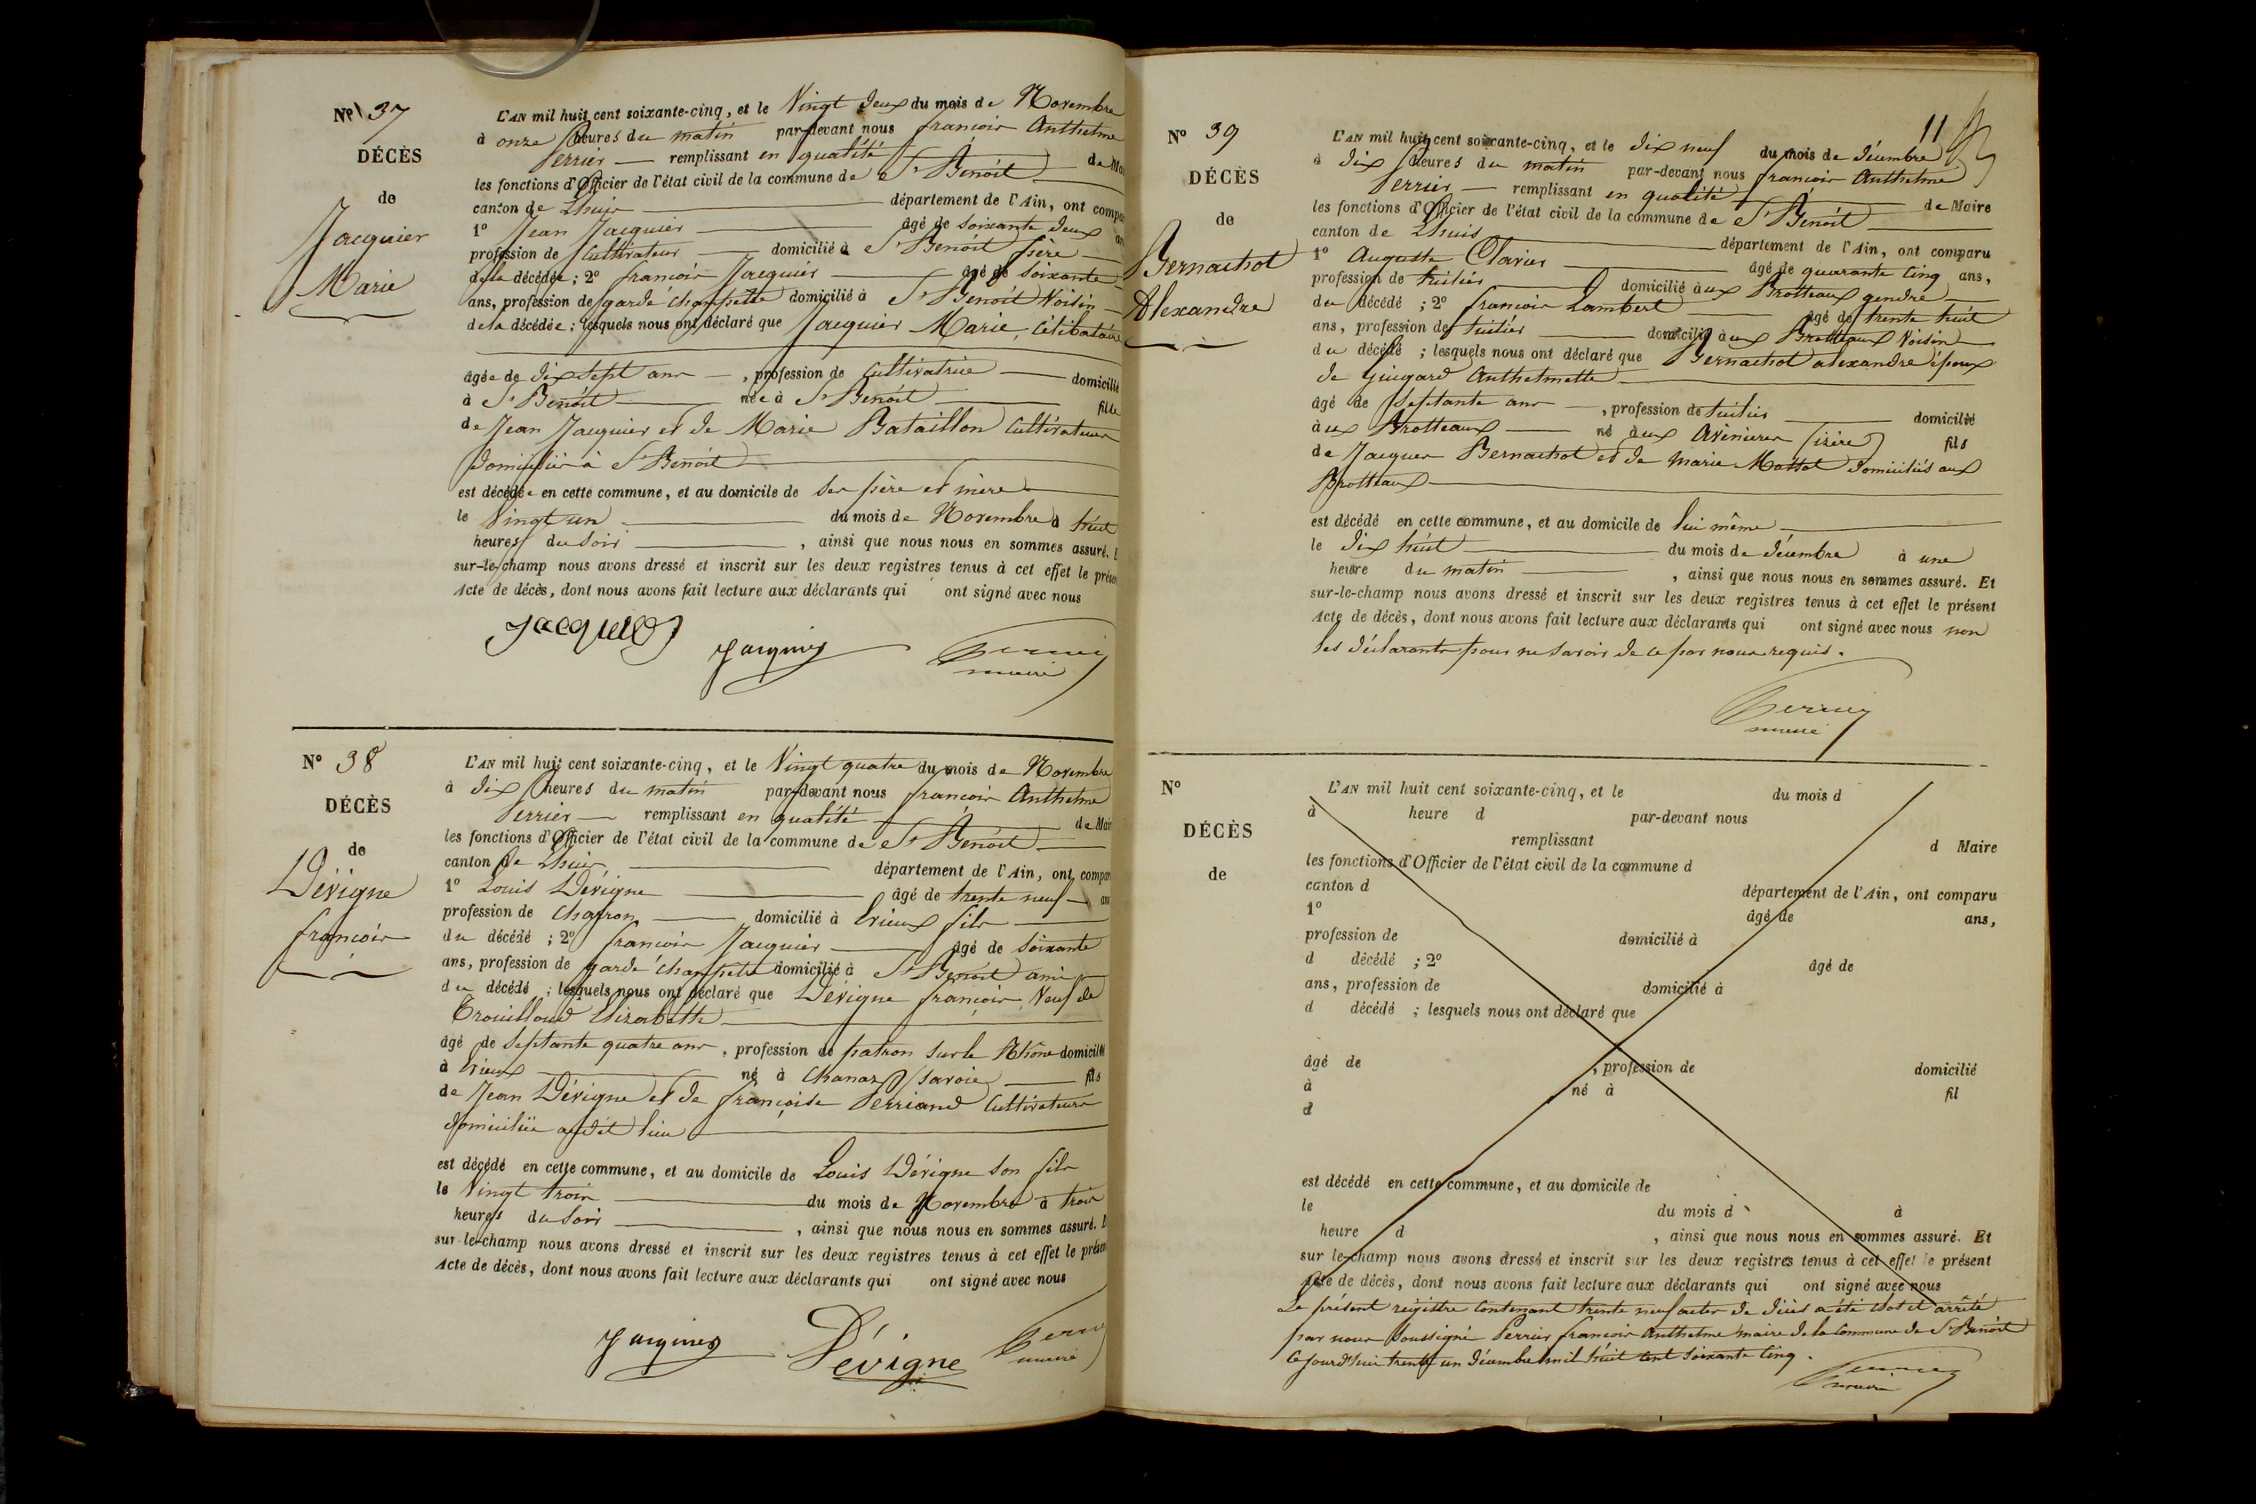 Nº 37
DÉCÈS
de
Jacquier
Marie
L'AN mil huit cent soixante-cinq, et le Vingt deux du mois de Novembre
à onze heures du matin par-devant nous françois Anthelme
Perrier — remplissant en qualité de Mai
les fonctions d'Officier de l'état civil de la commune de St Benoit
canton de Lhuis département de l'Ain, ont compa
1º Jean Jacquier âgé de soixante deux an
profession de Cultivateur domicilié à St Benoit père
de la décédée ; 2º françois Jacquier âgé de soixante
ans, profession de garde champêtre domicilié à St Benoit Voisin
de la décédée ; lesquels nous ont déclaré que Jacquier Marie, Célibataire
âgée de dix sept ans, profession de Cultivatrice domicilié
à St Benoit née à St Benoit fille
de Jean Jacquier et de Marie Bataillon Cultivateurs
domiciliés à St Benoit
est décédée en cette commune, et au domicile de ses père et mère
le Vingt un du mois de Novembre à huit
heures du soir, ainsi que nous nous en sommes assuré. E
sur-le-champ nous avons dressé et inscrit sur les deux registres tenus à cet effet le présen
Acte de décès, dont nous avons fait lecture aux déclarants qui ont signé avec nous
Jacquier Jacquier Perrier
maire
Nº 38
DÉCÈS
de
Dévigne
françois
L'AN mil huit cent soixante-cinq, et le Vingt quatre du mois de Novembre
à dix heures du matin par-devant nous françois Anthelme
Perrier — remplissant en qualité de Mair
les fonctions d'Officier de l'état civil de la commune de St Benoit
canton de Lhuis département de l'Ain, ont compar
1º Louis Dévigne âgé de trente neuf an
profession de Charron domicilié à Evieux fils
du décédé ; 2º françois Jacquier âgé de soixante
ans, profession de garde champêtre domicilié à St Benoit ami
du décédé ; lesquels nous ont déclaré que Dévigne françois, Veuf de
Trouilloud Elizabette
âgé de septante quatre ans, profession de patron sur le Rhône domicilié
à Evieux né à Chanaz (Savoie) fils
de Jean Dévigne et de françoise Perriand Cultivateurs
domiciliés audit lieu
est décédé en cette commune, et au domicile de Louis Dévigne son fils
le Vingt trois du mois de Novembre à trois
heures du soir, ainsi que nous nous en sommes assuré. E
sur-le-champ nous avons dressé et inscrit sur les deux registres tenus à cet effet le présen
Acte de décès, dont nous avons fait lecture aux déclarants qui ont signé avec nous
Jacquier Dévigne Perrier
maire
11
Nº 39
DÉCÈS
de
Bernachot
Alexandre
L'AN mil huit cent soixante-cinq, et le dix neuf du mois de décembre
à dix heures du matin par-devant nous françois Anthelme
Perrier — remplissant en qualité de Maire
les fonctions d'Officier de l'état civil de la commune de St Benoit
canton de Lhuis département de l'Ain, ont comparu
1º Auguste Clavier âgé de quarante cinq ans,
profession de tuilier domicilié aux Brotteaux gendre
du décédé ; 2º françois Lambert âgé de trente huit
ans, profession de tuilier domicilié aux Brotteaux Voisin
du décédé ; lesquels nous ont déclaré que Bernachot alexandre époux
de Guigard Anthelmette
âgé de septante ans, profession de tuilier domicilié
aux Brotteaux né aux Avenieres (isère) fils
de Jacques Bernachot et de marie Mottet domiciliés aux
Brotteaux
est décédé en cette commune, et au domicile de lui même
le dix huit du mois de décembre à une
heure du matin, ainsi que nous nous en sommes assuré. Et
sur-le-champ nous avons dressé et inscrit sur les deux registres tenus à cet effet le présent
Acte de décès, dont nous avons fait lecture aux déclarants qui ont signé avec nous non
les déclarants pour ne savoir de ce par nous requis.
Perrier
maire
Nº
DÉCÈS
de
L'AN mil huit cent soixante-cinq, et le du mois d
à heure d par-devant nous
remplissant d Maire
les fonctions d'Officier de l'état civil de la commune d
canton d département de l'Ain, ont comparu
1º âgé de ans,
profession de domicilié à
d décédé ; 2º âgé de
ans, profession de domicilié à
d décédé ; lesquels nous ont déclaré que
âgé de , profession de domicilié
à né à fil
d
est décédé en cette commune, et au domicile de
le du mois d à
heure d , ainsi que nous nous en sommes assuré. Et
sur-le-champ nous avons dressé et inscrit sur les deux registres tenus à cet effet le présent
Acte de décès, dont nous avons fait lecture aux déclarants qui ont signé avec nous
Le présent régistre Contenant trente neuf actes de décès a été clot et arrêté
par nous soussigné Perrier françois Anthelme maire de la Commune de St Benoit
Cejourd'hui trente un décembre mil huit cent soixante cinq.
Perrier
maire